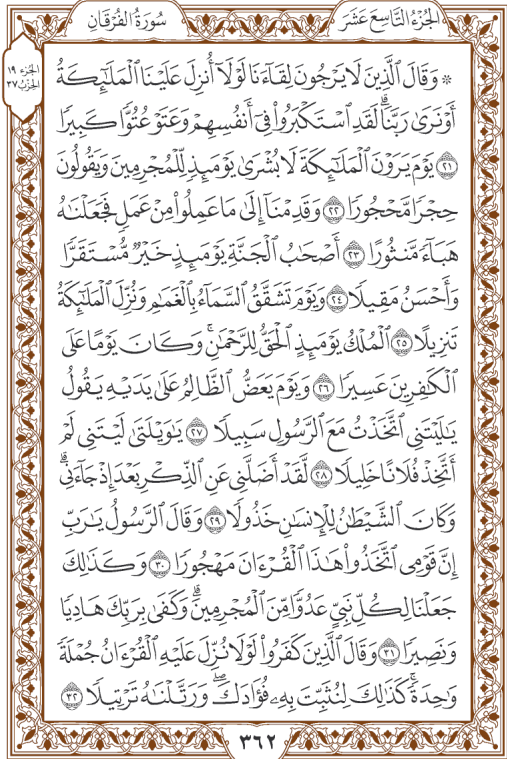 الجُزْءُ التَّاسِعَ عَشَرَ
سُورَةُ الفُرْقَانِ
الجُزء ١٩
الحِزْب ٣٧
۞ وَقَالَ ٱلَّذِينَ لَا يَرْجُونَ لِقَآءَنَا لَوْلَآ أُنزِلَ عَلَيْنَا ٱلْمَلَٰٓئِكَةُ
أَوْ نَرَىٰ رَبَّنَا ۗ لَقَدِ ٱسْتَكْبَرُوا۟ فِىٓ أَنفُسِهِمْ وَعَتَوْ عُتُوًّا كَبِيرًا
٢١ يَوْمَ يَرَوْنَ ٱلْمَلَٰٓئِكَةَ لَا بُشْرَىٰ يَوْمَئِذٍ لِّلْمُجْرِمِينَ وَيَقُولُونَ
حِجْرًا مَّحْجُورًا ٢٢ وَقَدِمْنَآ إِلَىٰ مَا عَمِلُوا۟ مِنْ عَمَلٍ فَجَعَلْنَٰهُ
هَبَآءً مَّنثُورًا ٢٣ أَصْحَٰبُ ٱلْجَنَّةِ يَوْمَئِذٍ خَيْرٌ مُّسْتَقَرًّا
وَأَحْسَنُ مَقِيلًا ٢٤ وَيَوْمَ تَشَقَّقُ ٱلسَّمَآءُ بِٱلْغَمَٰمِ وَنُزِّلَ ٱلْمَلَٰٓئِكَةُ
تَنزِيلًا ٢٥ ٱلْمُلْكُ يَوْمَئِذٍ ٱلْحَقُّ لِلرَّحْمَٰنِ ۚ وَكَانَ يَوْمًا عَلَى
ٱلْكَٰفِرِينَ عَسِيرًا ٢٦ وَيَوْمَ يَعَضُّ ٱلظَّالِمُ عَلَىٰ يَدَيْهِ يَقُولُ
يَٰلَيْتَنِى ٱتَّخَذْتُ مَعَ ٱلرَّسُولِ سَبِيلًا ٢٧ يَٰوَيْلَتَىٰ لَيْتَنِى لَمْ
أَتَّخِذْ فُلَانًا خَلِيلًا ٢٨ لَّقَدْ أَضَلَّنِى عَنِ ٱلذِّكْرِ بَعْدَ إِذْ جَآءَنِى ۗ
وَكَانَ ٱلشَّيْطَٰنُ لِلْإِنسَٰنِ خَذُولًا ٢٩ وَقَالَ ٱلرَّسُولُ يَٰرَبِّ
إِنَّ قَوْمِى ٱتَّخَذُوا۟ هَٰذَا ٱلْقُرْءَانَ مَهْجُورًا ٣٠ وَكَذَٰلِكَ
جَعَلْنَا لِكُلِّ نَبِىٍّ عَدُوًّا مِّنَ ٱلْمُجْرِمِينَ ۗ وَكَفَىٰ بِرَبِّكَ هَادِيًا
وَنَصِيرًا ٣١ وَقَالَ ٱلَّذِينَ كَفَرُوا۟ لَوْلَا نُزِّلَ عَلَيْهِ ٱلْقُرْءَانُ جُمْلَةً
وَٰحِدَةً ۚ كَذَٰلِكَ لِنُثَبِّتَ بِهِۦ فُؤَادَكَ ۖ وَرَتَّلْنَٰهُ تَرْتِيلًا ٣٢
٣٦٢